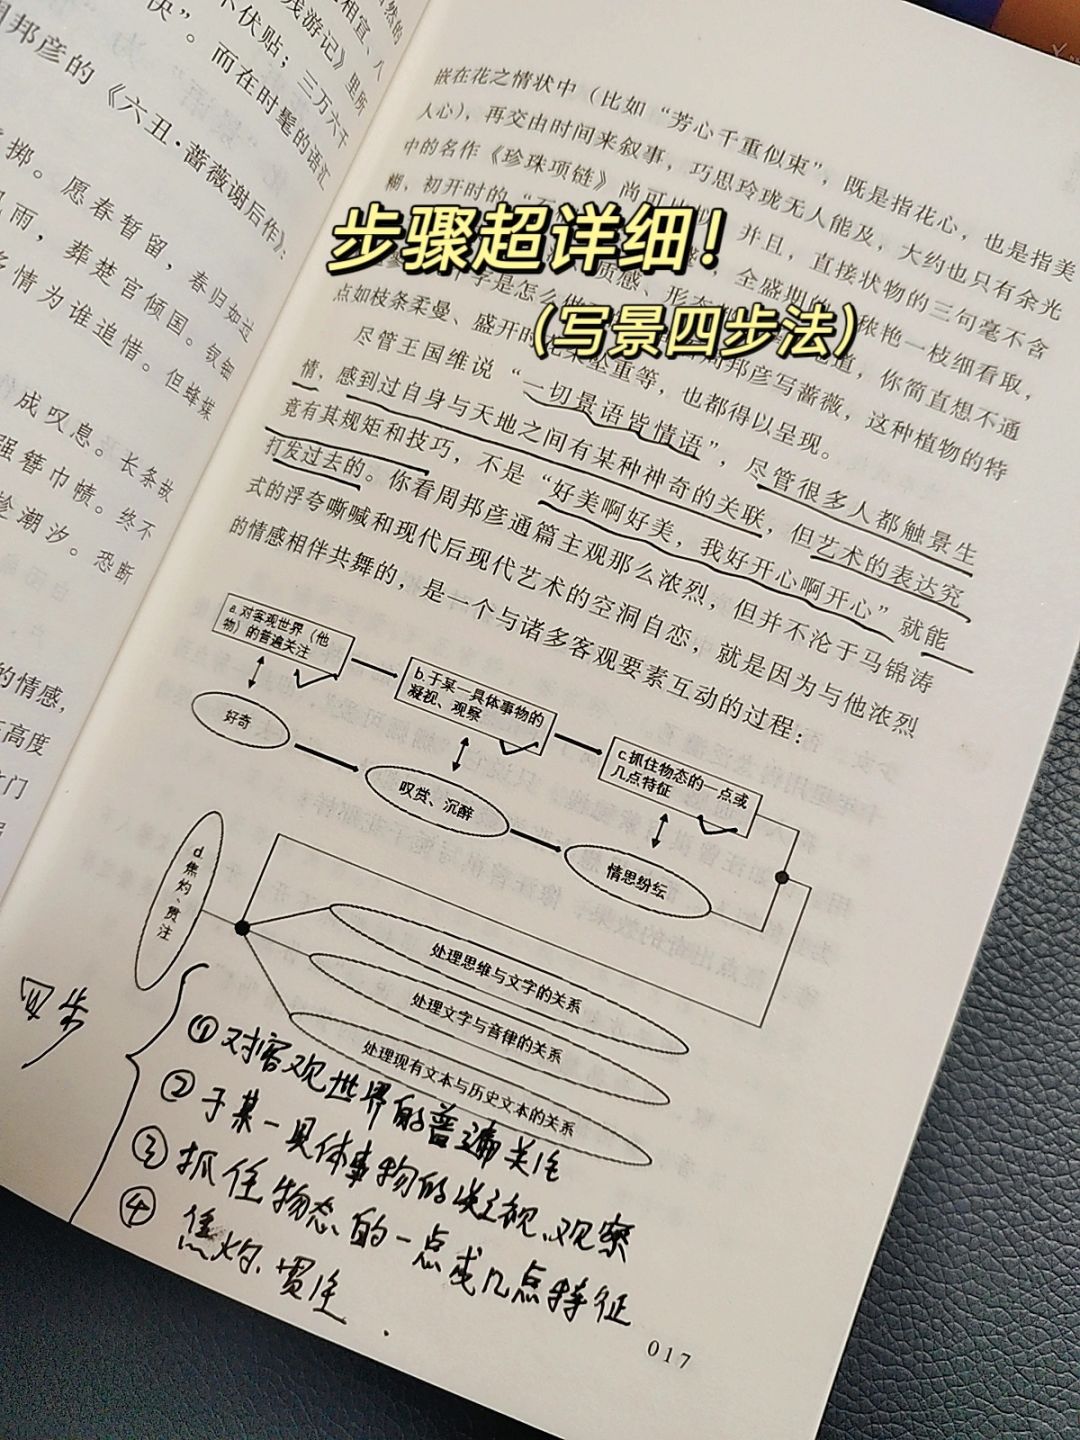 然的
相宜、八
残游记》里所
不伏贴；三万六千
快”。而在时髦的语汇
周邦彦的《六丑·蔷薇谢后作》：
掷。愿春暂留，春归如过
风雨，葬楚宫倾国。钗钿
多情为谁追惜。但蜂媒
成叹息。长条故
强簪巾帻。终不
趁潮汐。恐断
的情感，
高度
文门
嵌在花之情状中（比如“芳心千重似束”，既是指花心，也是指美
人心），再交由时间来叙事，巧思玲珑无人能及，大约也只有余光
中的名作《珍珠项链》尚可比
并且，直接状物的三句毫不含
糊，初开时的“石
全盛期的“秾艳一枝细看取，
步骤超详细！
（写景四步法）
质感、形态
道，你简直想不通
字是怎么做
周邦彦写蔷薇，这种植物的特
点如枝条柔曼、盛开时
坠重等，也都得以呈现。
尽管王国维说“一切景语皆情语”，尽管很多人都触景生
情、感到过自身与天地之间有某种神奇的关联，但艺术的表达究
竟有其规矩和技巧，不是“好美啊好美，我好开心啊开心”就能
打发过去的。你看周邦彦通篇主观那么浓烈，但并不沦于马锦涛
式的浮夸嘶喊和现代后现代艺术的空洞自恋，就是因为与他浓烈
的情感相伴共舞的，是一个与诸多客观要素互动的过程：
a.对客观世界（他
物）的普遍关注
b.于某一具体事物的
凝视、观察
c.抓住物态的一点或
几点特征
好奇
叹赏、沉醉
情思纷纭
d.
焦灼、贯注
处理思维与文字的关系
处理文字与音律的关系
处理现有文本与历史文本的关系
四步
①对客观世界的普遍关注
②于某一具体事物的凝视、观察
③抓住物态的一点或几点特征
④焦灼、贯注.
017